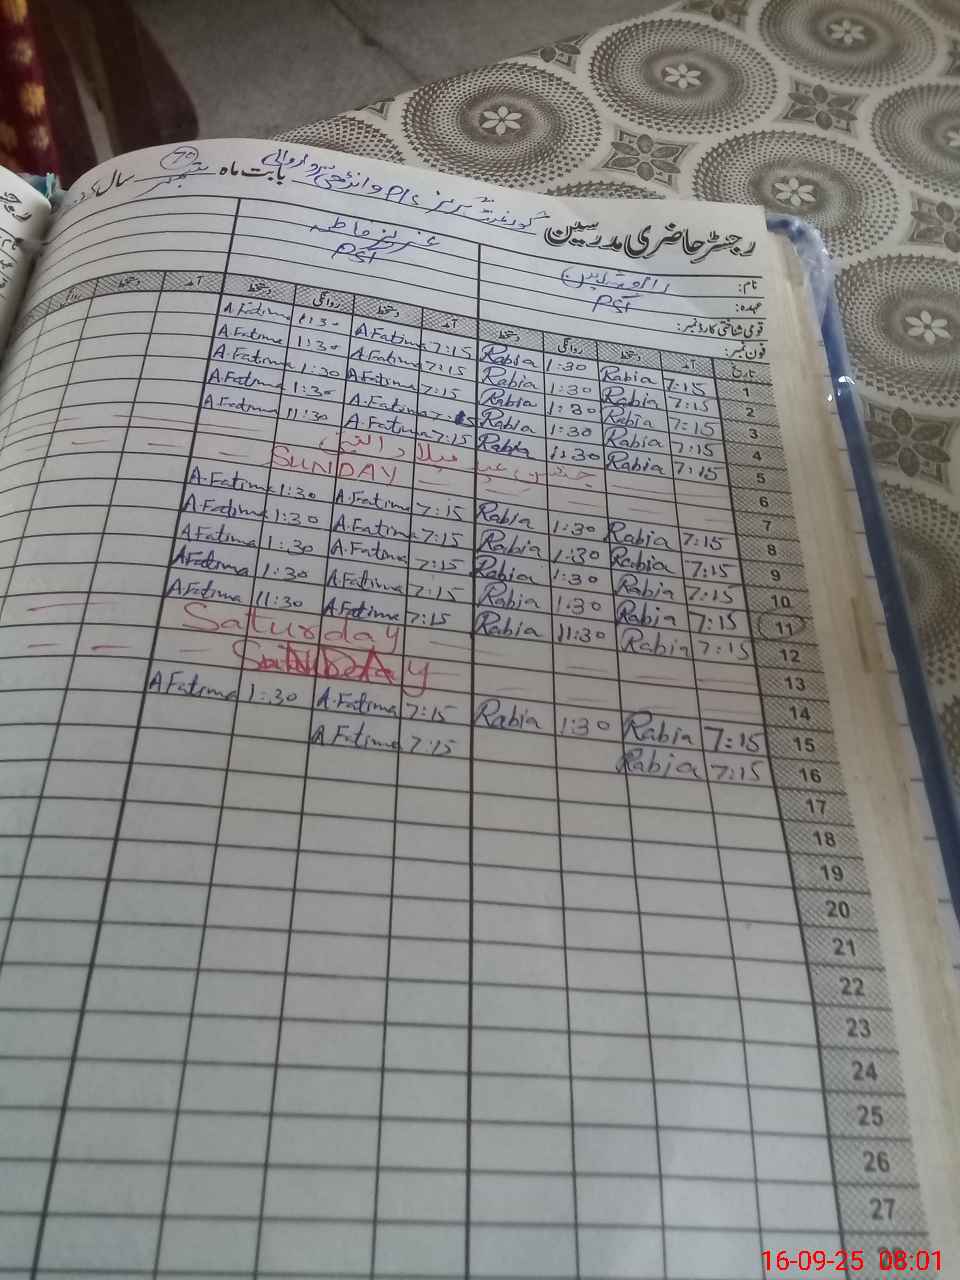 رجسٹر حاضری مدرسین گورنمنٹ گرلز بابت ماہ ستمبر سال
نام:
عہدہ: PST PST
قومی شناختی کارڈ نمبر:
فون نمبر:
تاریخ آمد دستخط روانگی دستخط آمد دستخط روانگی دستخط آمد دستخط روانگی
1 7:15 Rabia 1:30 Rabia 7:15 A.Fatima 1:30 A.Fatima
2 7:15 Rabia 1:30 Rabia 7:15 A.Fatima 1:30 A.Fatima
3 7:15 Rabia 1:30 Rabia 7:15 A.Fatima 1:30 A.Fatima
4 7:15 Rabia 1:30 Rabia 7:15 A.Fatima 1:30 A.Fatima
5 7:15 Rabia 11:30 Rabia 7:15 A.Fatima 11:30 A.Fatima
6 جشن عید میلاد النبی
7 SUNDAY
8 7:15 Rabia 1:30 Rabia 7:15 A.Fatima 1:30 A.Fatima
9 7:15 Rabia 1:30 Rabia 7:15 A.Fatima 1:30 A.Fatima
10 7:15 Rabia 1:30 Rabia 7:15 A.Fatima 1:30 A.Fatima
11 7:15 Rabia 1:30 Rabia 7:15 A.Fatima 1:30 A.Fatima
12 7:15 Rabia 11:30 Rabia 7:15 A.Fatima 11:30 A.Fatima
13 Saturday
14 SUNDAY
15 7:15 Rabia 1:30 Rabia 7:15 A.Fatima 1:30 A Fatima
16 7:15 Rabia 7:15 A.Fatima
17
18
19
20
21
22
23
24
25
26
27
16-09-25 08:01